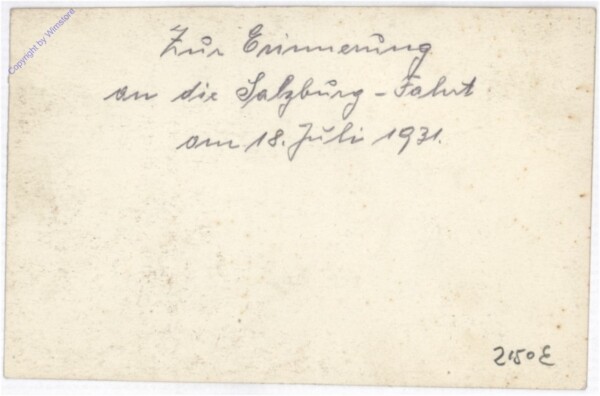 Copyright by Wimstore
Zur Erinnerung
an die Salzburg-Fahrt
am 18. Juli 1931.
2150E